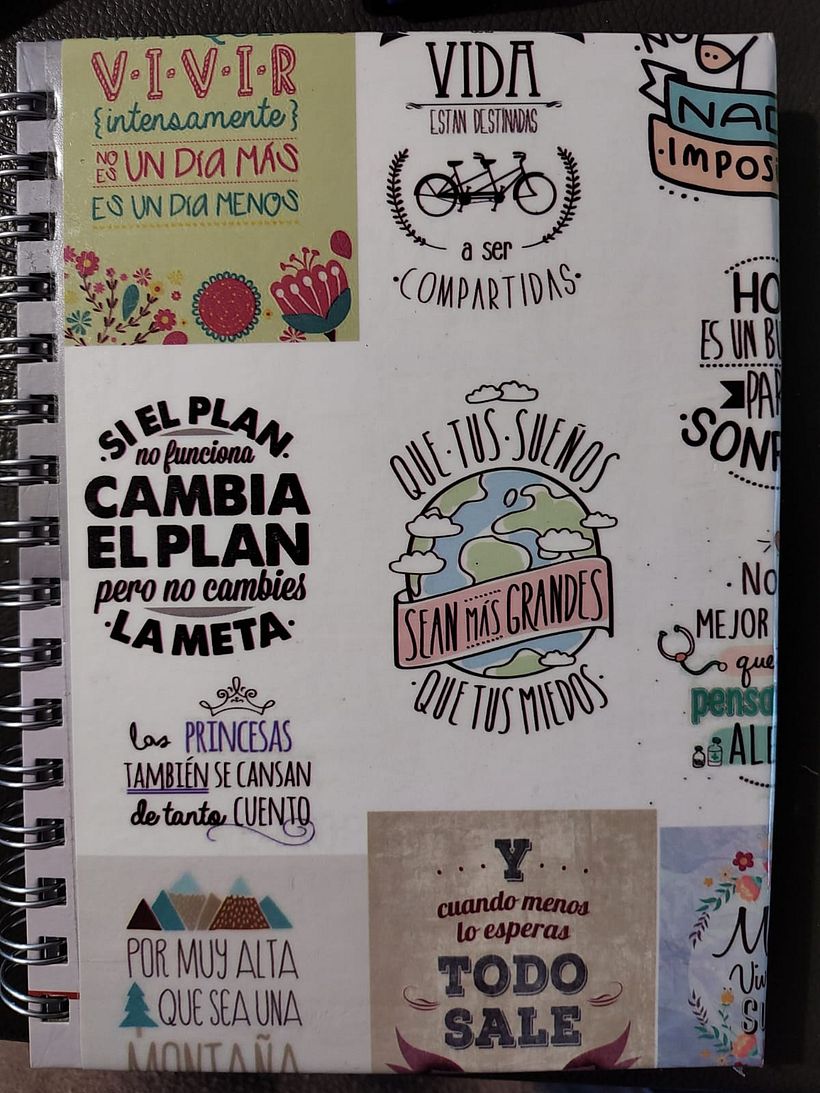 V·I·V·I·R
{intensamente}
NO ES UN DÍA MÁS
ES UN DÍA MENOS
VIDA
ESTAN DESTINADAS
a ser
·COMPARTIDAS·
NO
NAD
·IMPOS
HO
ES UN BU
PAR
·SONR
·SI EL PLAN·
no funciona
CAMBIA
EL PLAN
pero no cambies
·LA META·
QUE·TUS·SUEÑOS
SEAN MÁS GRANDES
·QUE TUS MIEDOS·
·NO
MEJOR
que
pensa
ALE
las PRINCESAS
TAMBIÉN SE CANSAN
de tanto CUENTO
POR MUY ALTA
QUE SEA UNA
MONTAÑA
...Y...
cuando menos
lo esperas
TODO
SALE
M
Viv